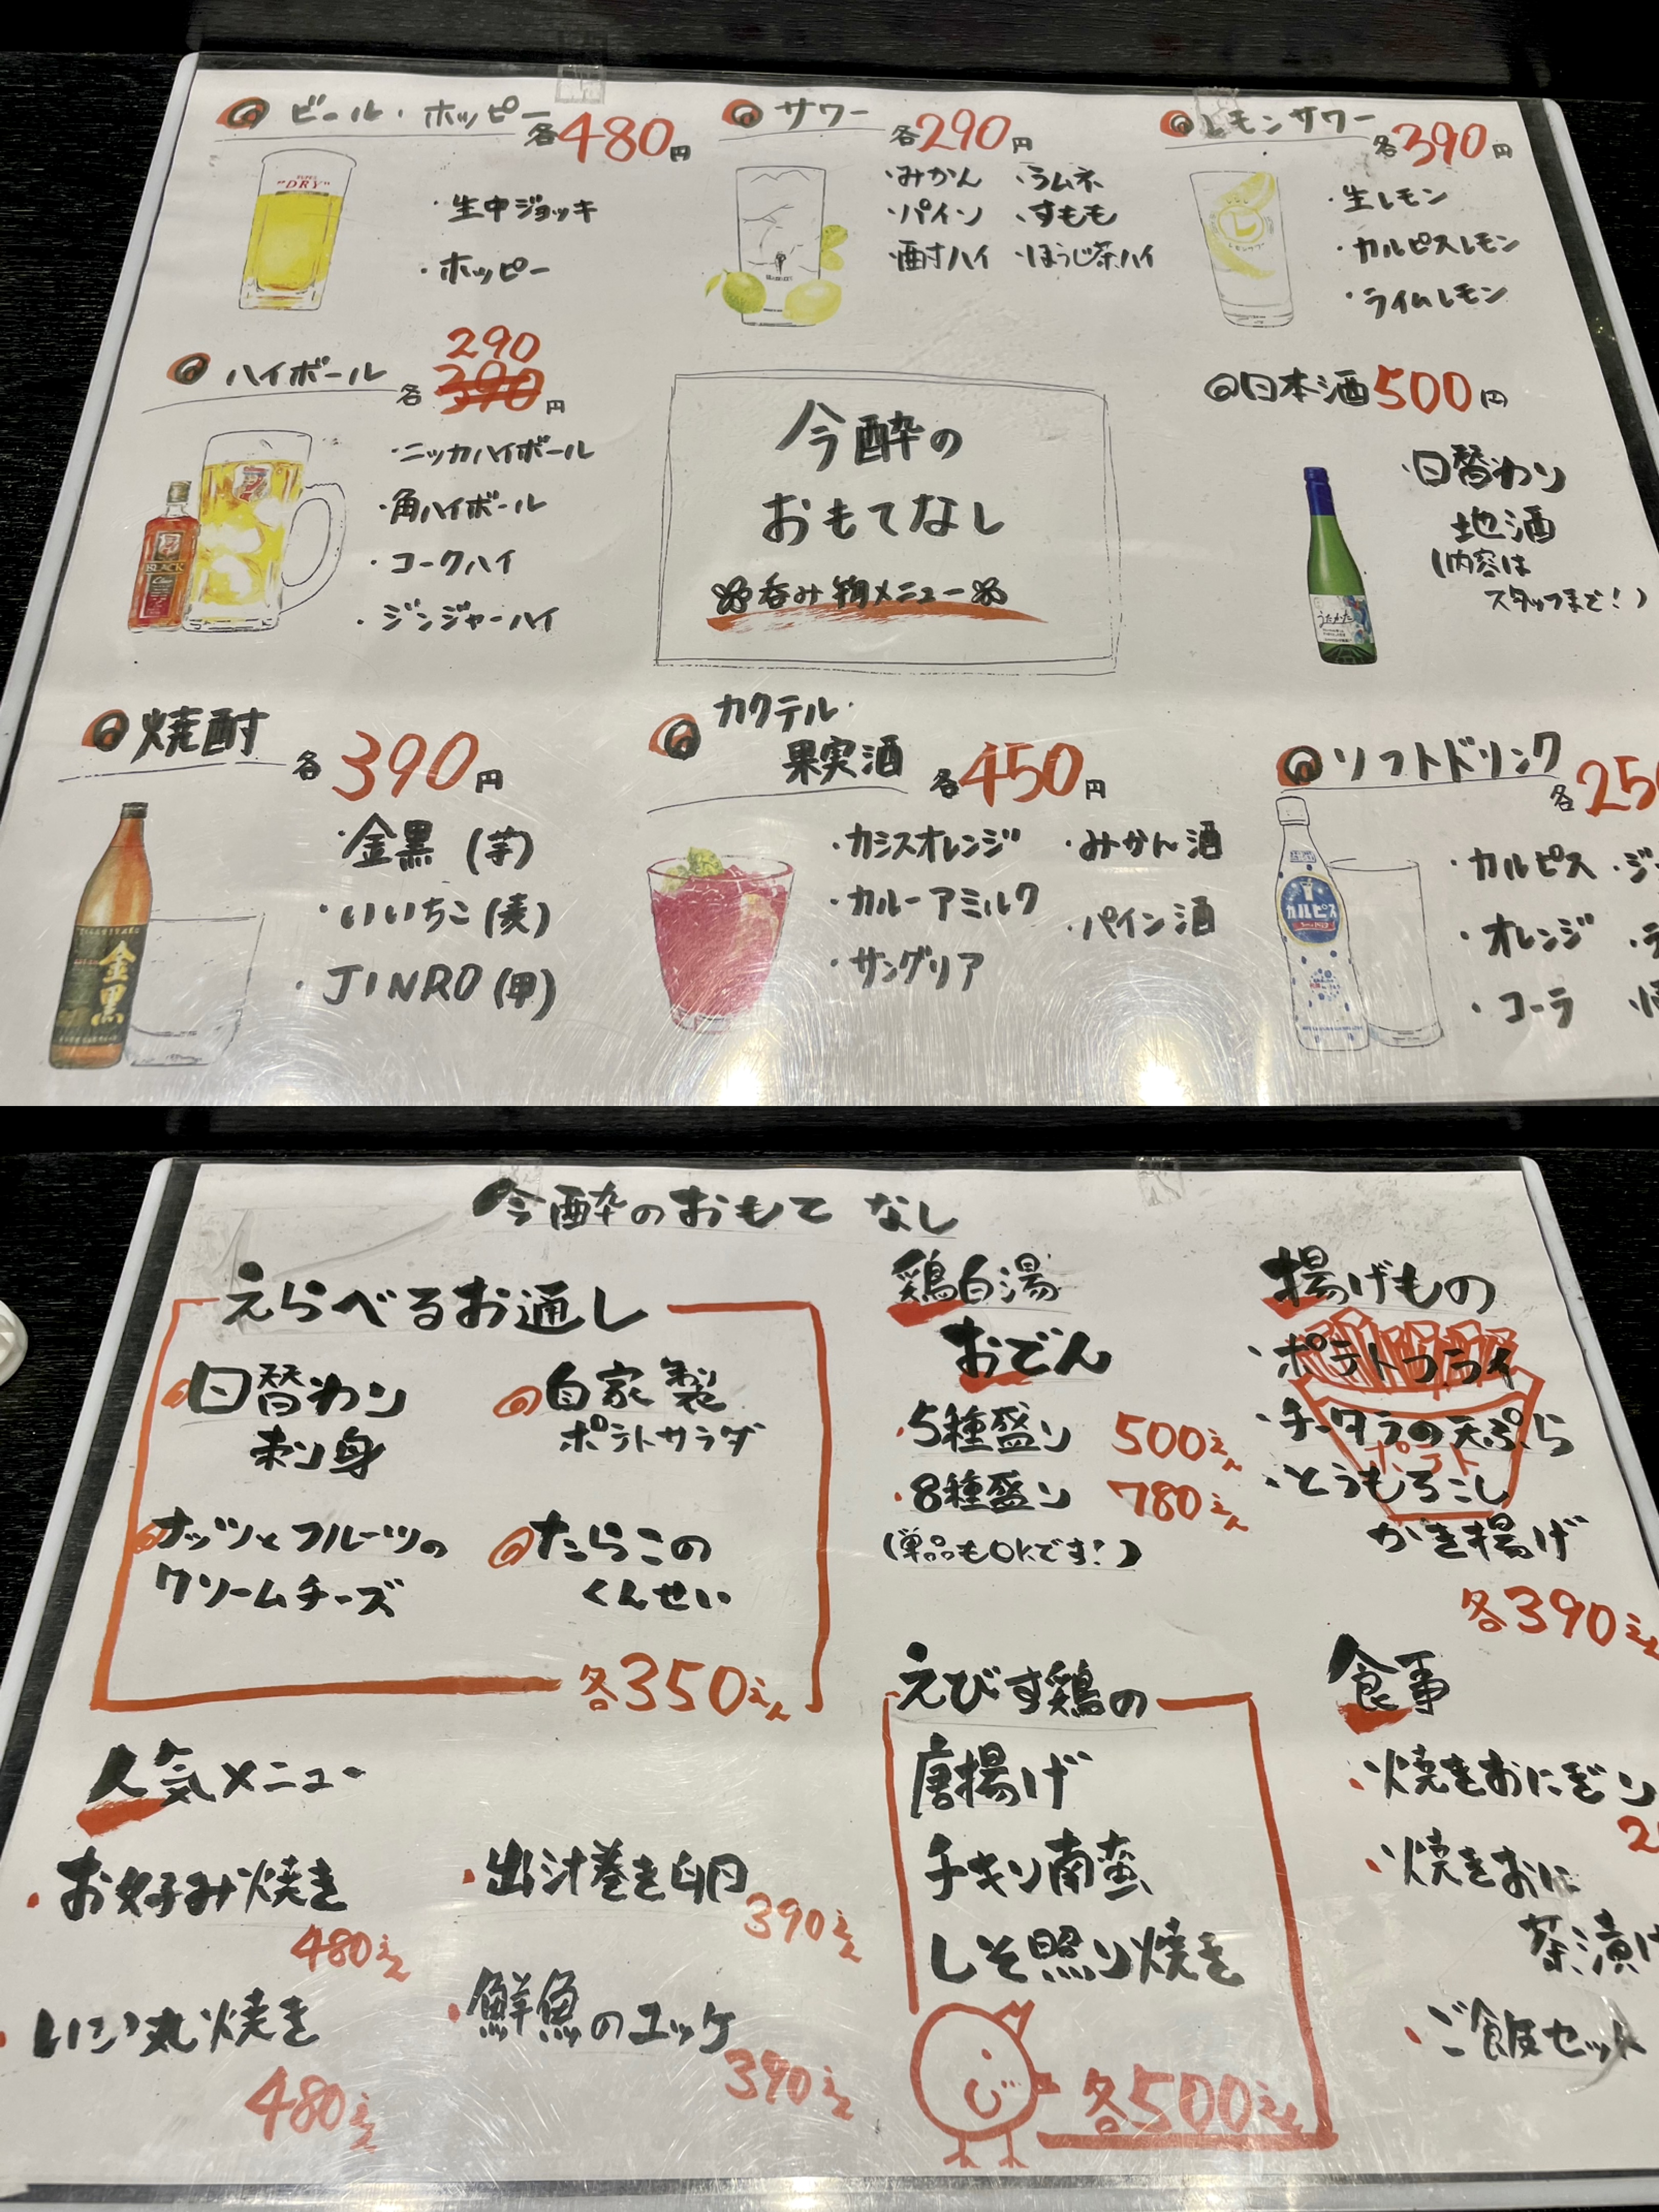 ビール・ホッピー 各480円
"DRY"
・生中ジョッキ
・ホッピー
サワー 各290円
・みかん ・ラムネ
・パイン ・すもも
・酎ハイ ・ほうじ茶ハイ
レモンサワー 各390円
・生レモン
・カルピスレモン
・ライムレモン
ハイボール 各390円
290
・ニッカハイボール
・角ハイボール
・コークハイ
・ジンジャーハイ
BLACK
今酔の
おもてなし
呑み物メニュー
日本酒500円
・日替わり
地酒
(内容は
スタッフまで!)
焼酎 各390円
・金黒(芋)
・いいちこ(麦)
・JINRO(甲)
金黒
カクテル・
果実酒 各450円
・カシスオレンジ ・みかん酒
・カルーアミルク ・パイン酒
・サングリア
ソフトドリンク
各25
・カルピス ・ジ
・オレンジ
・コーラ
カルピス
今酔のおもてなし
えらべるお通し
日替わり
刺り身
自家製
ポテトサラダ
ナッツとフルーツの
クリームチーズ
たらこの
くんせい
各350えん
人気メニュー
・お好み焼き
480えん
・出汁巻き卵
390えん
・いか丸焼き
480えん
・鮮魚のユッケ
390えん
鶏白湯
おでん
・5種盛り 500えん
・8種盛り 780えん
(単品もOKです!)
揚げもの
・ポテトフライ
・チータラの天ぷら
・とうもろこし
かき揚げ
ポテト
各390えん
えびす鶏の
唐揚げ
チキン南蛮
しそ照り焼き
各500えん
食事
・焼きおにぎり
・焼きおに
茶漬け
・ご飯セット